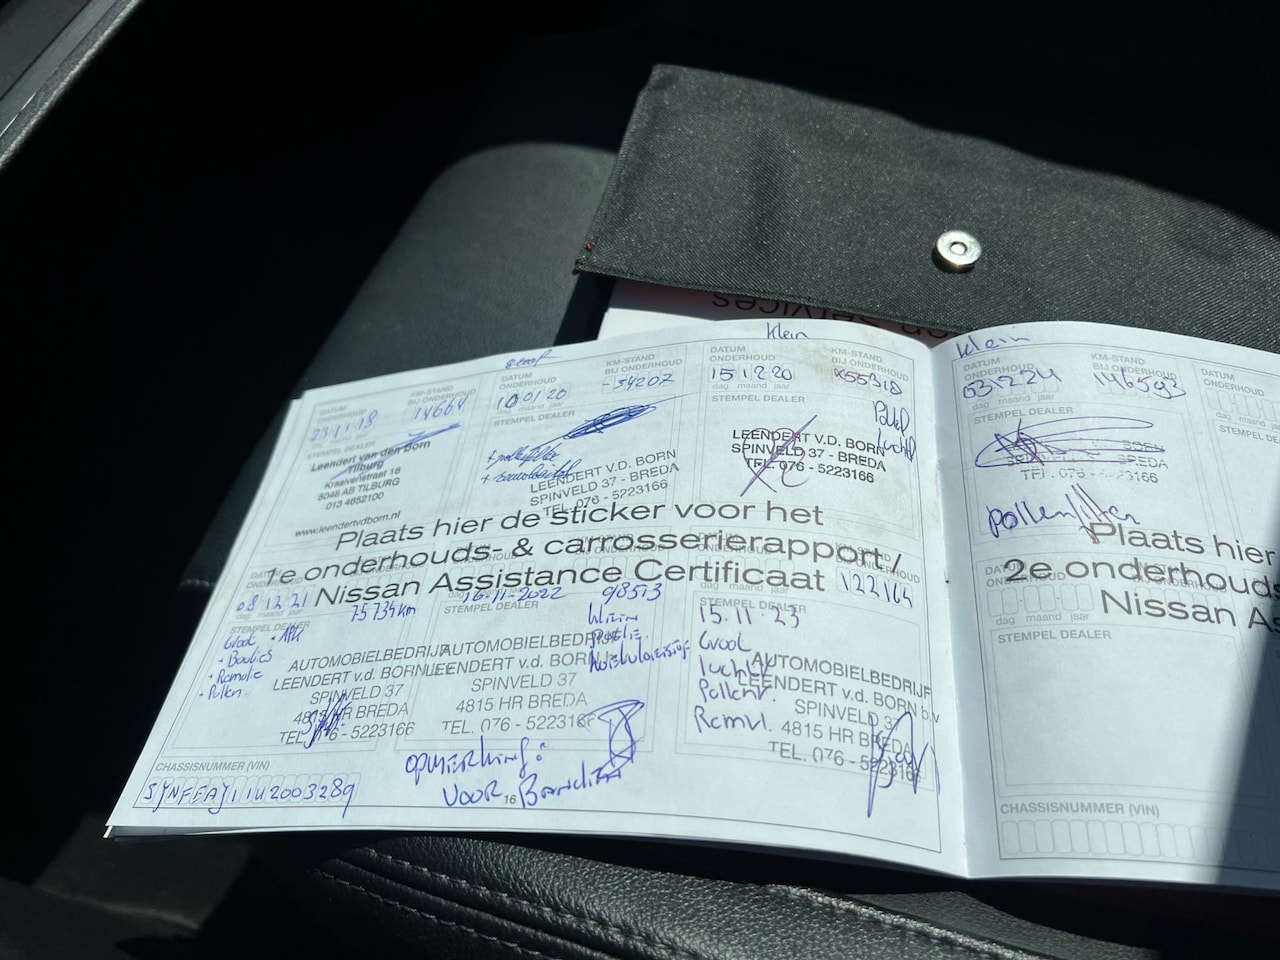 Klein
DATUM
ONDERHOUD
KM-STAND
BIJ ONDERHOUD
23 11 18
14664
dag maand jaar
STEMPEL DEALER
Leendert van den Born
Tilburg
Kraaivenstraat 18
5048 AB TILBURG
013 4652100
www.leendertvdborn.nl
DATUM
ONDERHOUD
KM-STAND
BIJ ONDERHOUD
10 01 20
34207
dag maand jaar
STEMPEL DEALER
LEENDERT V.D. BORN
SPINVELD 37 - BREDA
TEL. 076 - 5223166
DATUM
ONDERHOUD
KM-STAND
BIJ ONDERHOUD
15 12 20
dag maand jaar
STEMPEL DEALER
LEENDERT V.D. BORN
SPINVELD 37 - BREDA
TEL. 076 - 5223166
Plaats hier de sticker voor het
1e onderhouds- & carrosserierapport /
Nissan Assistance Certificaat
08 12 21
75734km
dag maand jaar
STEMPEL DEALER
Groot
Bougies
Remolie
Pollen.
AUTOMOBIELBEDRIJF
LEENDERT v.d. BORN
SPINVELD 37
4815 HR BREDA
TEL. 076 - 5223166
16-11-2022
98513
STEMPEL DEALER
Klein
AUTOMOBIELBEDRIJF
LEENDERT v.d. BORN
SPINVELD 37
4815 HR BREDA
TEL. 076 - 5223166
opmerking:
voor Banden
122164
STEMPEL DEALER
15.11.23
Groot
luchtf
Pollenf.
Remvl.
AUTOMOBIELBEDRIJF
LEENDERT v.d. BORN b.v
SPINVELD 37
4815 HR BREDA
TEL. 076 - 5223166
CHASSISNUMMER (VIN)
SJNFEAJ11U2003289
16
Klein
DATUM
ONDERHOUD
KM-STAND
BIJ ONDERHOUD
03 12 24
146593
dag maand jaar
STEMPEL DEALER
BORN
BREDA
TEL. 076 - 5223166
pollenfilter
Plaats hier
2e onderhouds
Nissan As
dag maand jaar
STEMPEL DEALER
CHASSISNUMMER (VIN)
DATUM
ONDERHOUD
dag maand
STEMPEL DEA